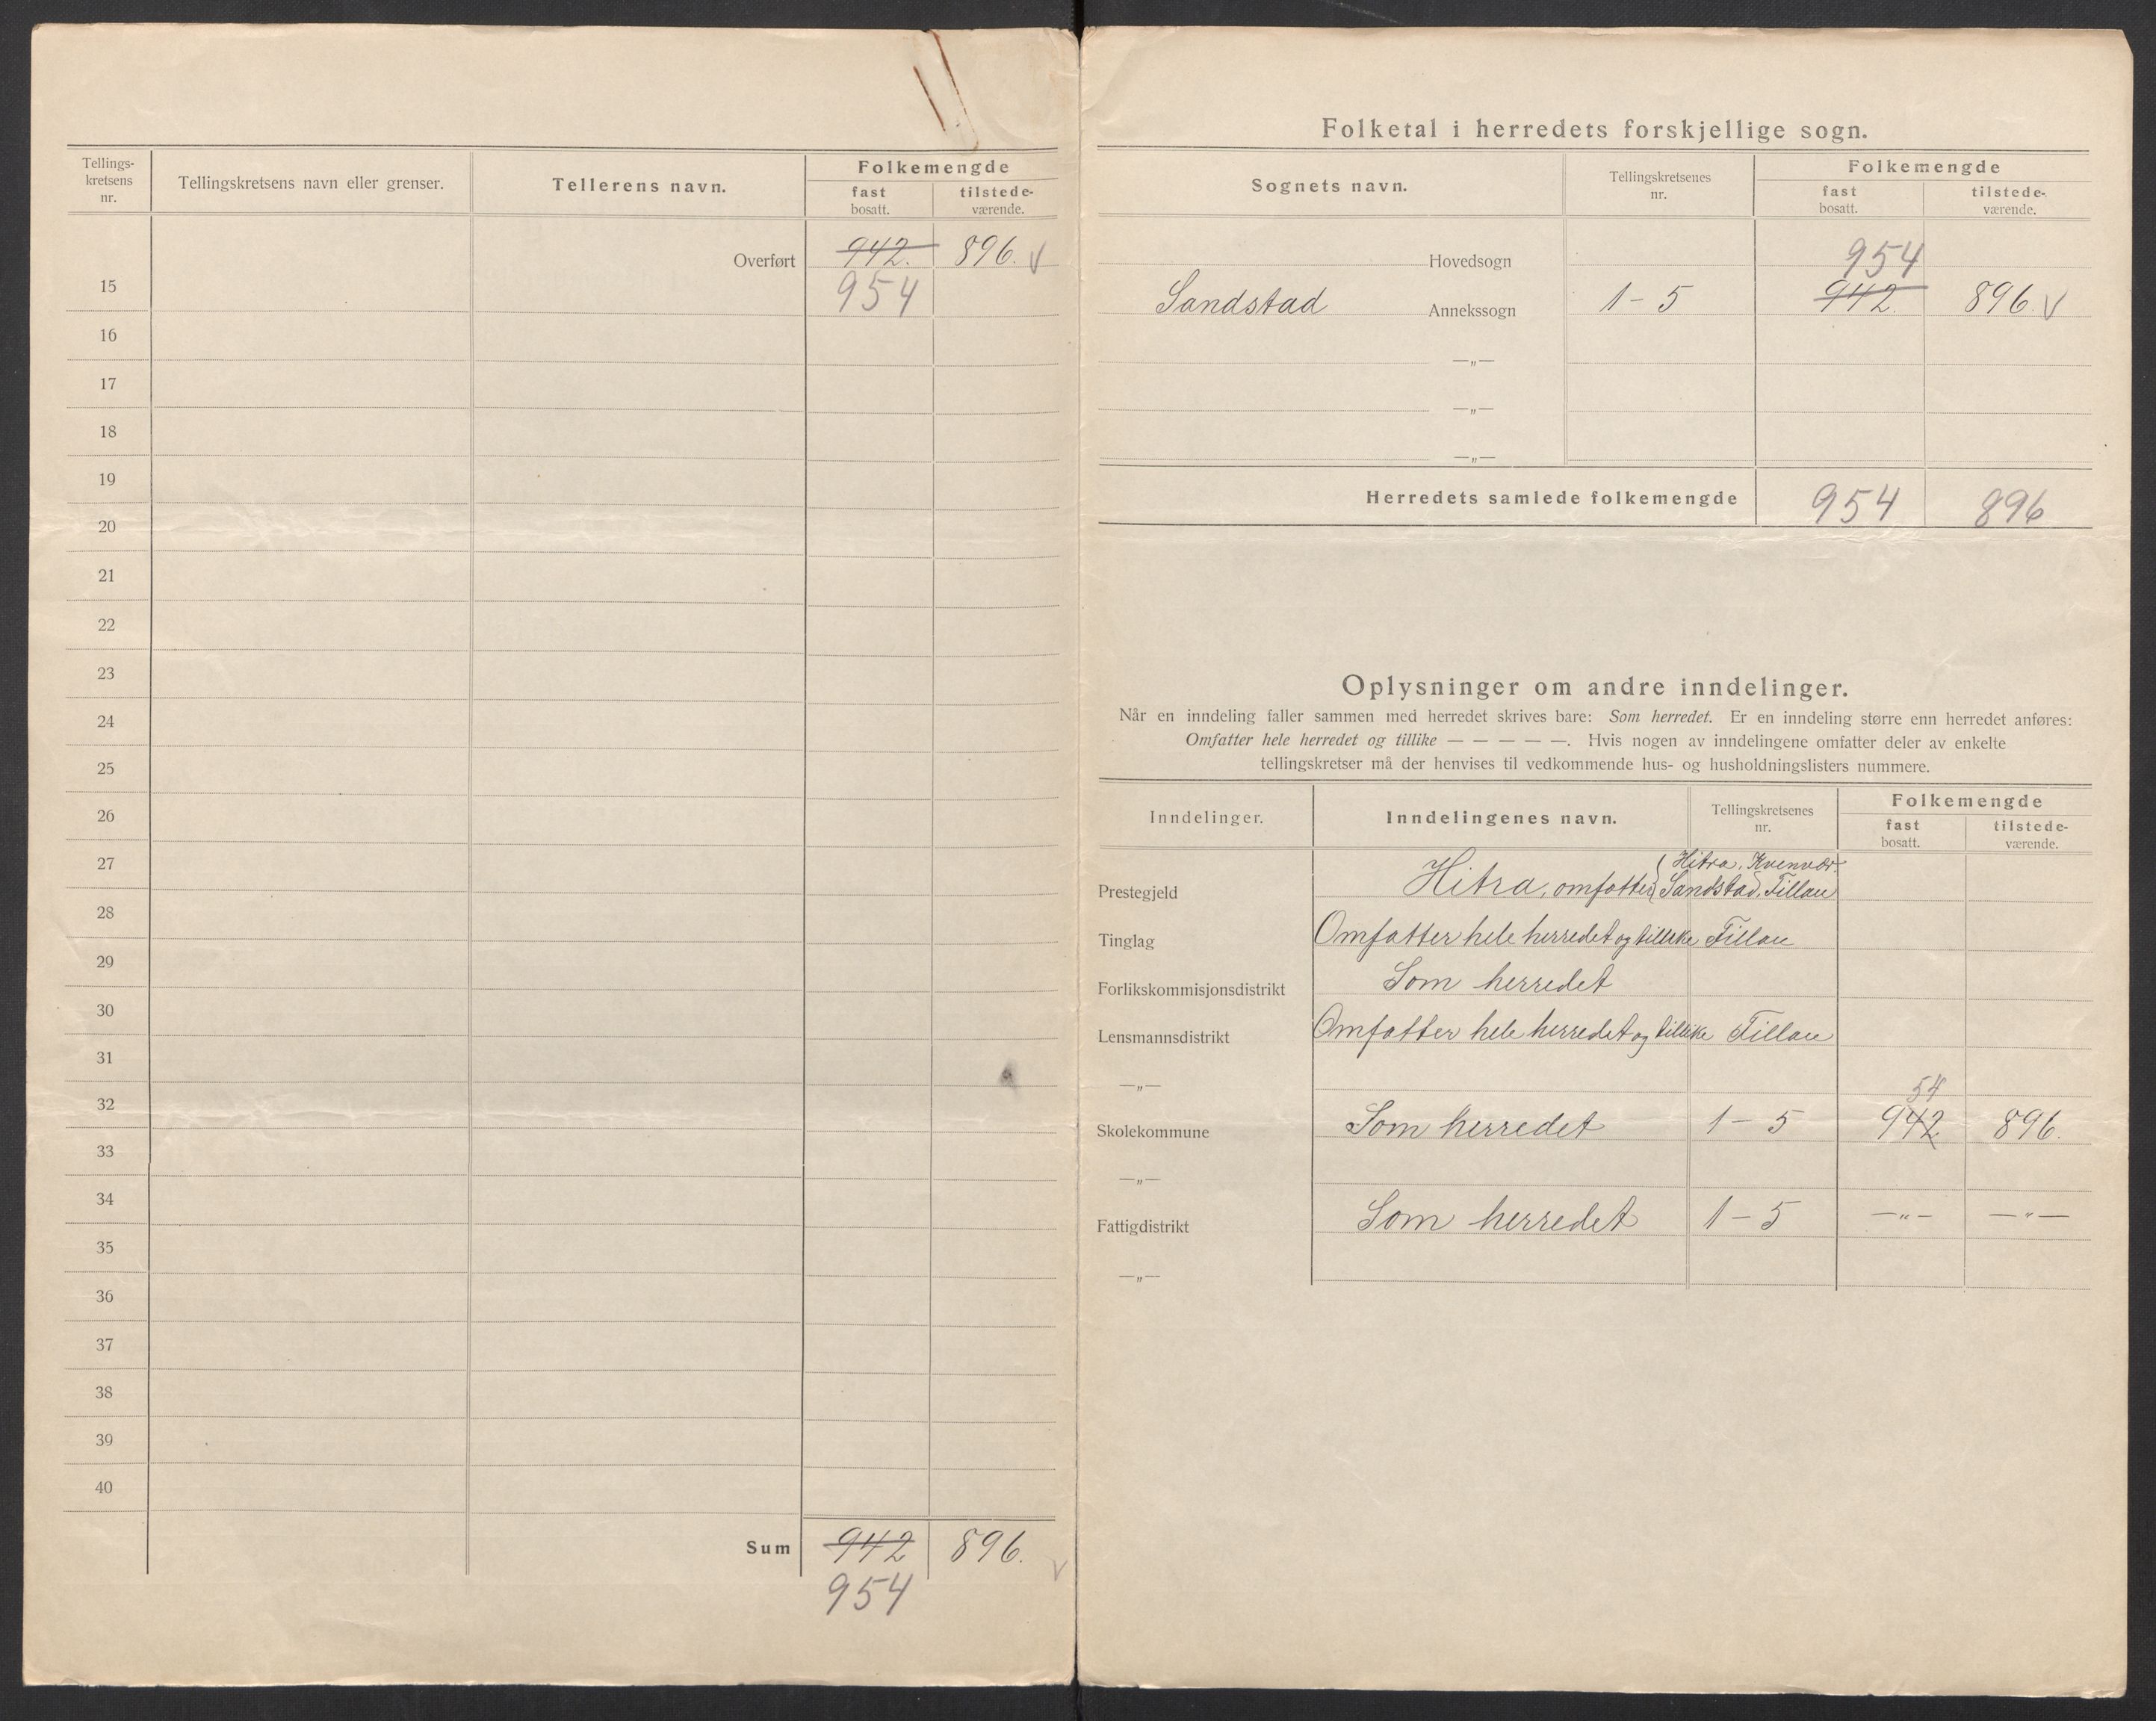 Tellings-
kretsens
nr.
Tellingskretsens navn eller grenser.
Tellerens navn.
Folkemengde
fast
bosatt.
tilstede-
værende.
Overført 942. 896. V
15 954
16
17
18
19
20
21
22
23
24
25
26
27
28
29
30
31
32
33
34
35
36
37
38
39
40
Sum 942 896. V
954
Folketal i herredets forskjellige sogn.
Sognets navn.
Tellingskretsenes
nr.
Folkemengde
fast
bosatt.
tilstede-
værende.
Hovedsogn 954
Sandstad Annekssogn 1-5 942. 896. V
—„—
—„—
—„—
Herredets samlede folkemengde 954 896
Oplysninger om andre inndelinger.
Når en inndeling faller sammen med herredet skrives bare: Som herredet. Er en inndeling større enn herredet anføres:
Omfatter hele herredet og tillike — — — — —. Hvis nogen av inndelingene omfatter deler av enkelte
tellingskretser må der henvises til vedkommende hus- og husholdningslisters nummere.
Inndelinger.
Inndelingenes navn.
Tellingskretsenes
nr.
Folkemengde
fast
bosatt.
tilstede-
værende.
Hitra, Kvenvær.
Prestegjeld Hitra, omfatter Sandstad, Fillan
Tinglag Omfatter hele herredet og tillike Fillan
Forlikskommisjonsdistrikt Som herredet
Lensmannsdistrikt Omfatter hele herredet og tillike Fillan
—„—
54
Skolekommune Som herredet 1-5 942 896.
—„—
Fattigdistrikt Som herredet 1-5 —„— —„—
—„—